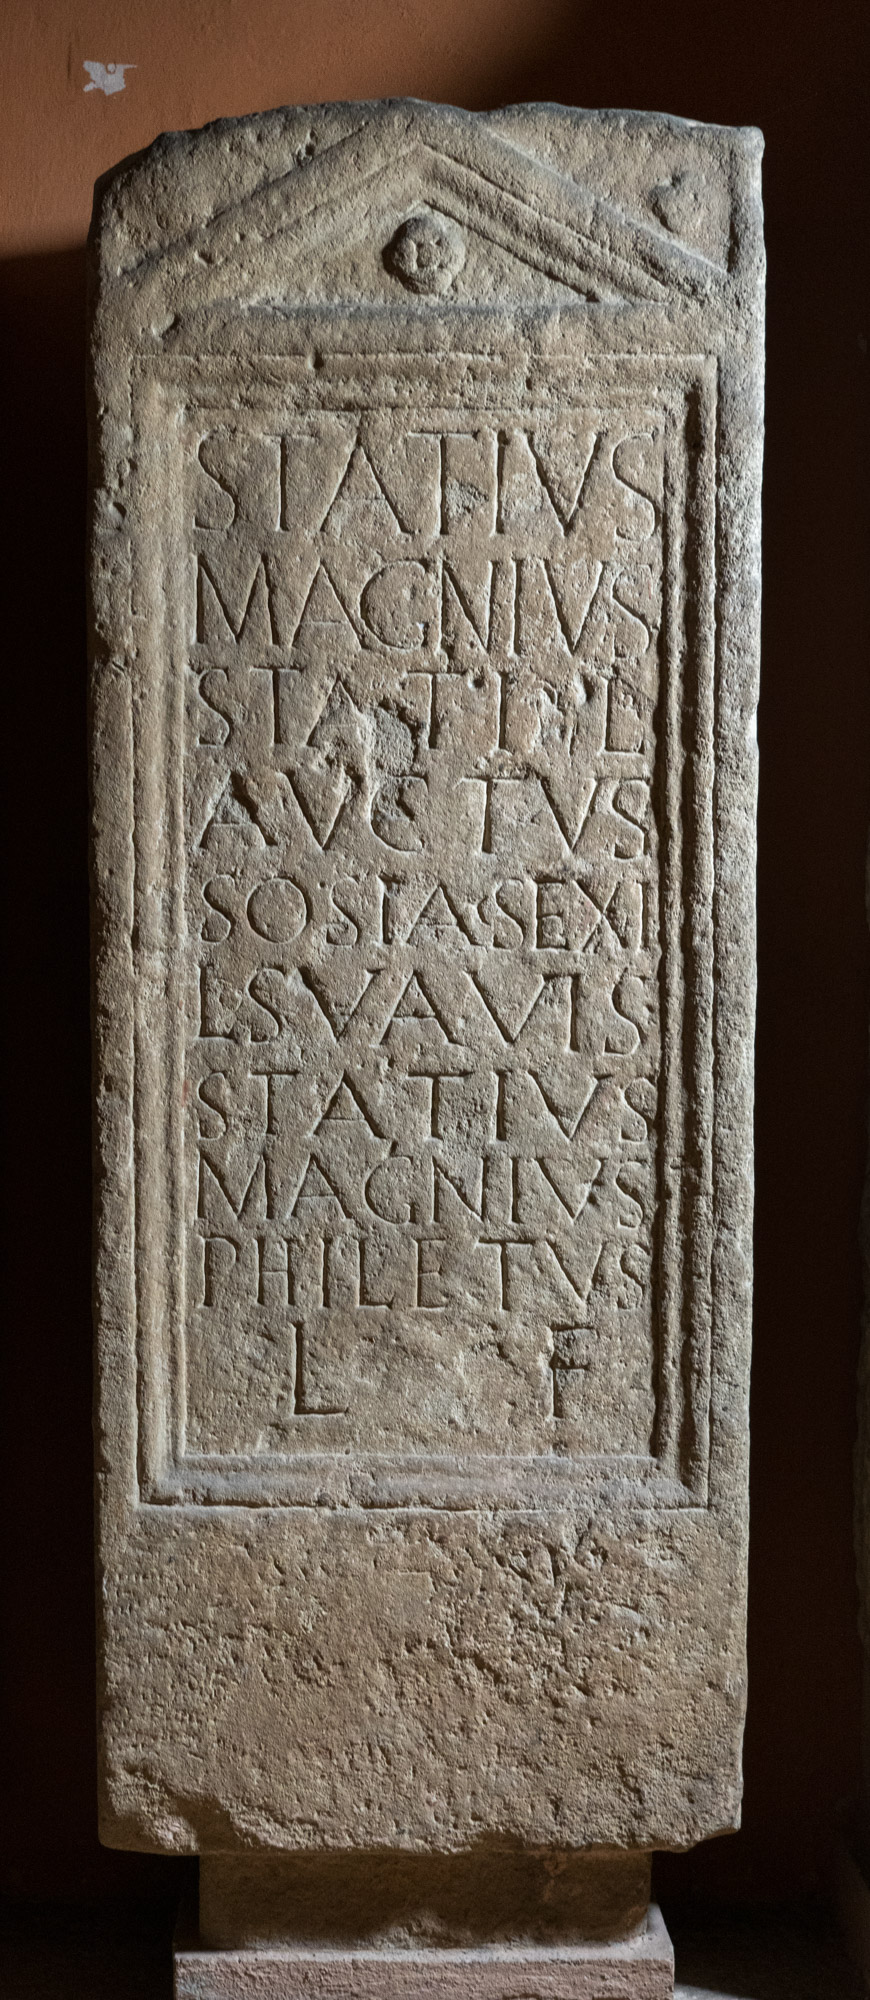 STATIVS
MAGNIVS
STATI L
AVCTVS
SOSIA SEX I
L SVAVIS
STATIVS
MAGNIVS
PHILETVS
L F